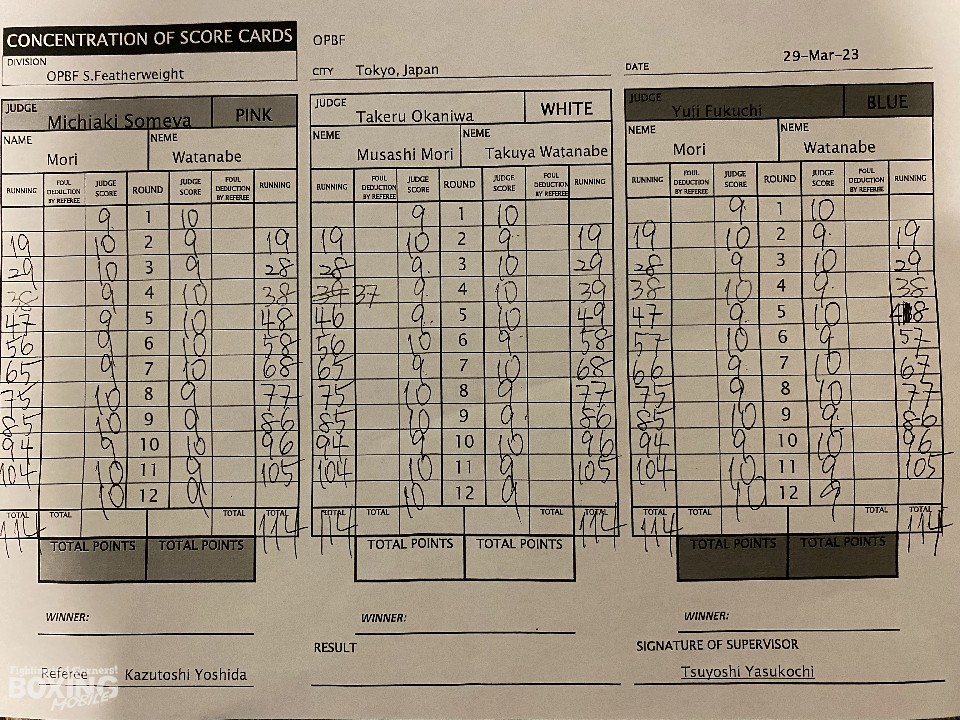 CONCENTRATION OF SCORE CARDS
DIVISION
OPBF S.Featherweight
OPBF
CITY Tokyo, Japan
DATE 29-Mar-23
JUDGE Michiaki Someya PINK
NAME NEME
Mori Watanabe
RUNNING FOUL DEDUCTION BY REFEREE JUDGE SCORE ROUND JUDGE SCORE FOUL DEDUCTION BY REFEREE RUNNING
9 1 10
19 10 2 9 19
29 10 3 9 28
38 9 4 10 38
47 9 5 10 48
56 9 6 10 58
65 9 7 10 68
75 10 8 9 77
85 10 9 9 86
94 9 10 10 96
104 10 11 9 105
10 12 9
TOTAL TOTAL TOTAL TOTAL
114 114
TOTAL POINTS TOTAL POINTS
WINNER:
Referee Kazutoshi Yoshida
JUDGE Takeru Okaniwa WHITE
NEME NEME
Musashi Mori Takuya Watanabe
RUNNING FOUL DEDUCTION BY REFEREE JUDGE SCORE ROUND JUDGE SCORE FOUL DEDUCTION BY REFEREE RUNNING
9 1 10
19 10 2 9 19
28 9 3 10 29
37 9 4 10 39
46 9 5 10 49
56 10 6 9 58
65 9 7 10 68
75 10 8 9 77
85 10 9 9 86
94 9 10 10 96
104 10 11 9 105
10 12 9
TOTAL TOTAL TOTAL TOTAL
114 114
TOTAL POINTS TOTAL POINTS
WINNER:
RESULT
JUDGE Yuji Fukuchi BLUE
NEME NEME
Mori Watanabe
RUNNING FOUL DEDUCTION BY REFEREE JUDGE SCORE ROUND JUDGE SCORE FOUL DEDUCTION BY REFEREE RUNNING
9 1 10
19 10 2 9 19
28 9 3 10 29
38 10 4 9 38
47 9 5 10 48
57 10 6 9 57
66 9 7 10 67
75 9 8 10 77
85 10 9 9 86
94 9 10 10 96
104 10 11 9 105
10 12 9
TOTAL TOTAL TOTAL TOTAL
114 114
TOTAL POINTS TOTAL POINTS
WINNER:
SIGNATURE OF SUPERVISOR
Tsuyoshi Yasukochi
BOXING
MOBILE